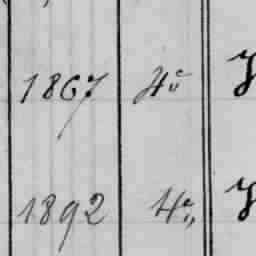 1867 4e
1892 4e